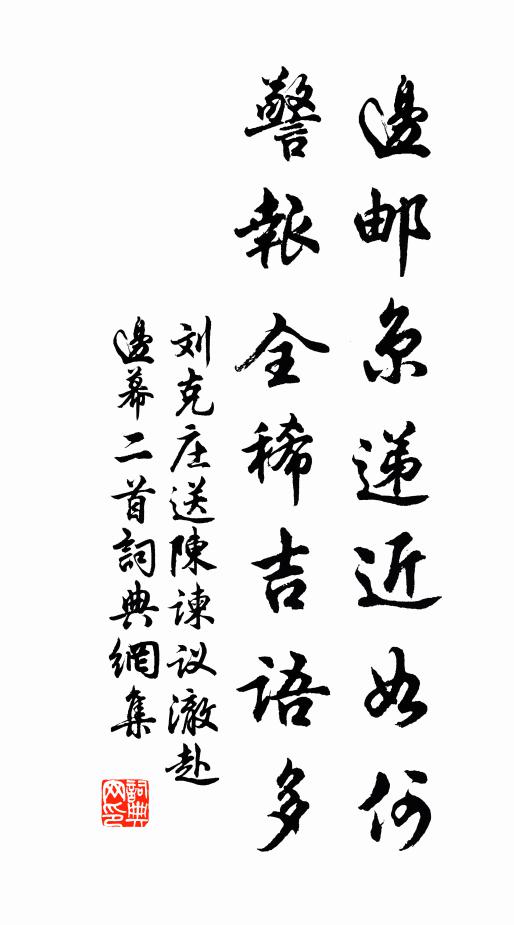 邊邮京递近如何
警報全稀吉語多
刘克庄送陳諫议澈赴
邊幕二首詞典網集
詞典网印